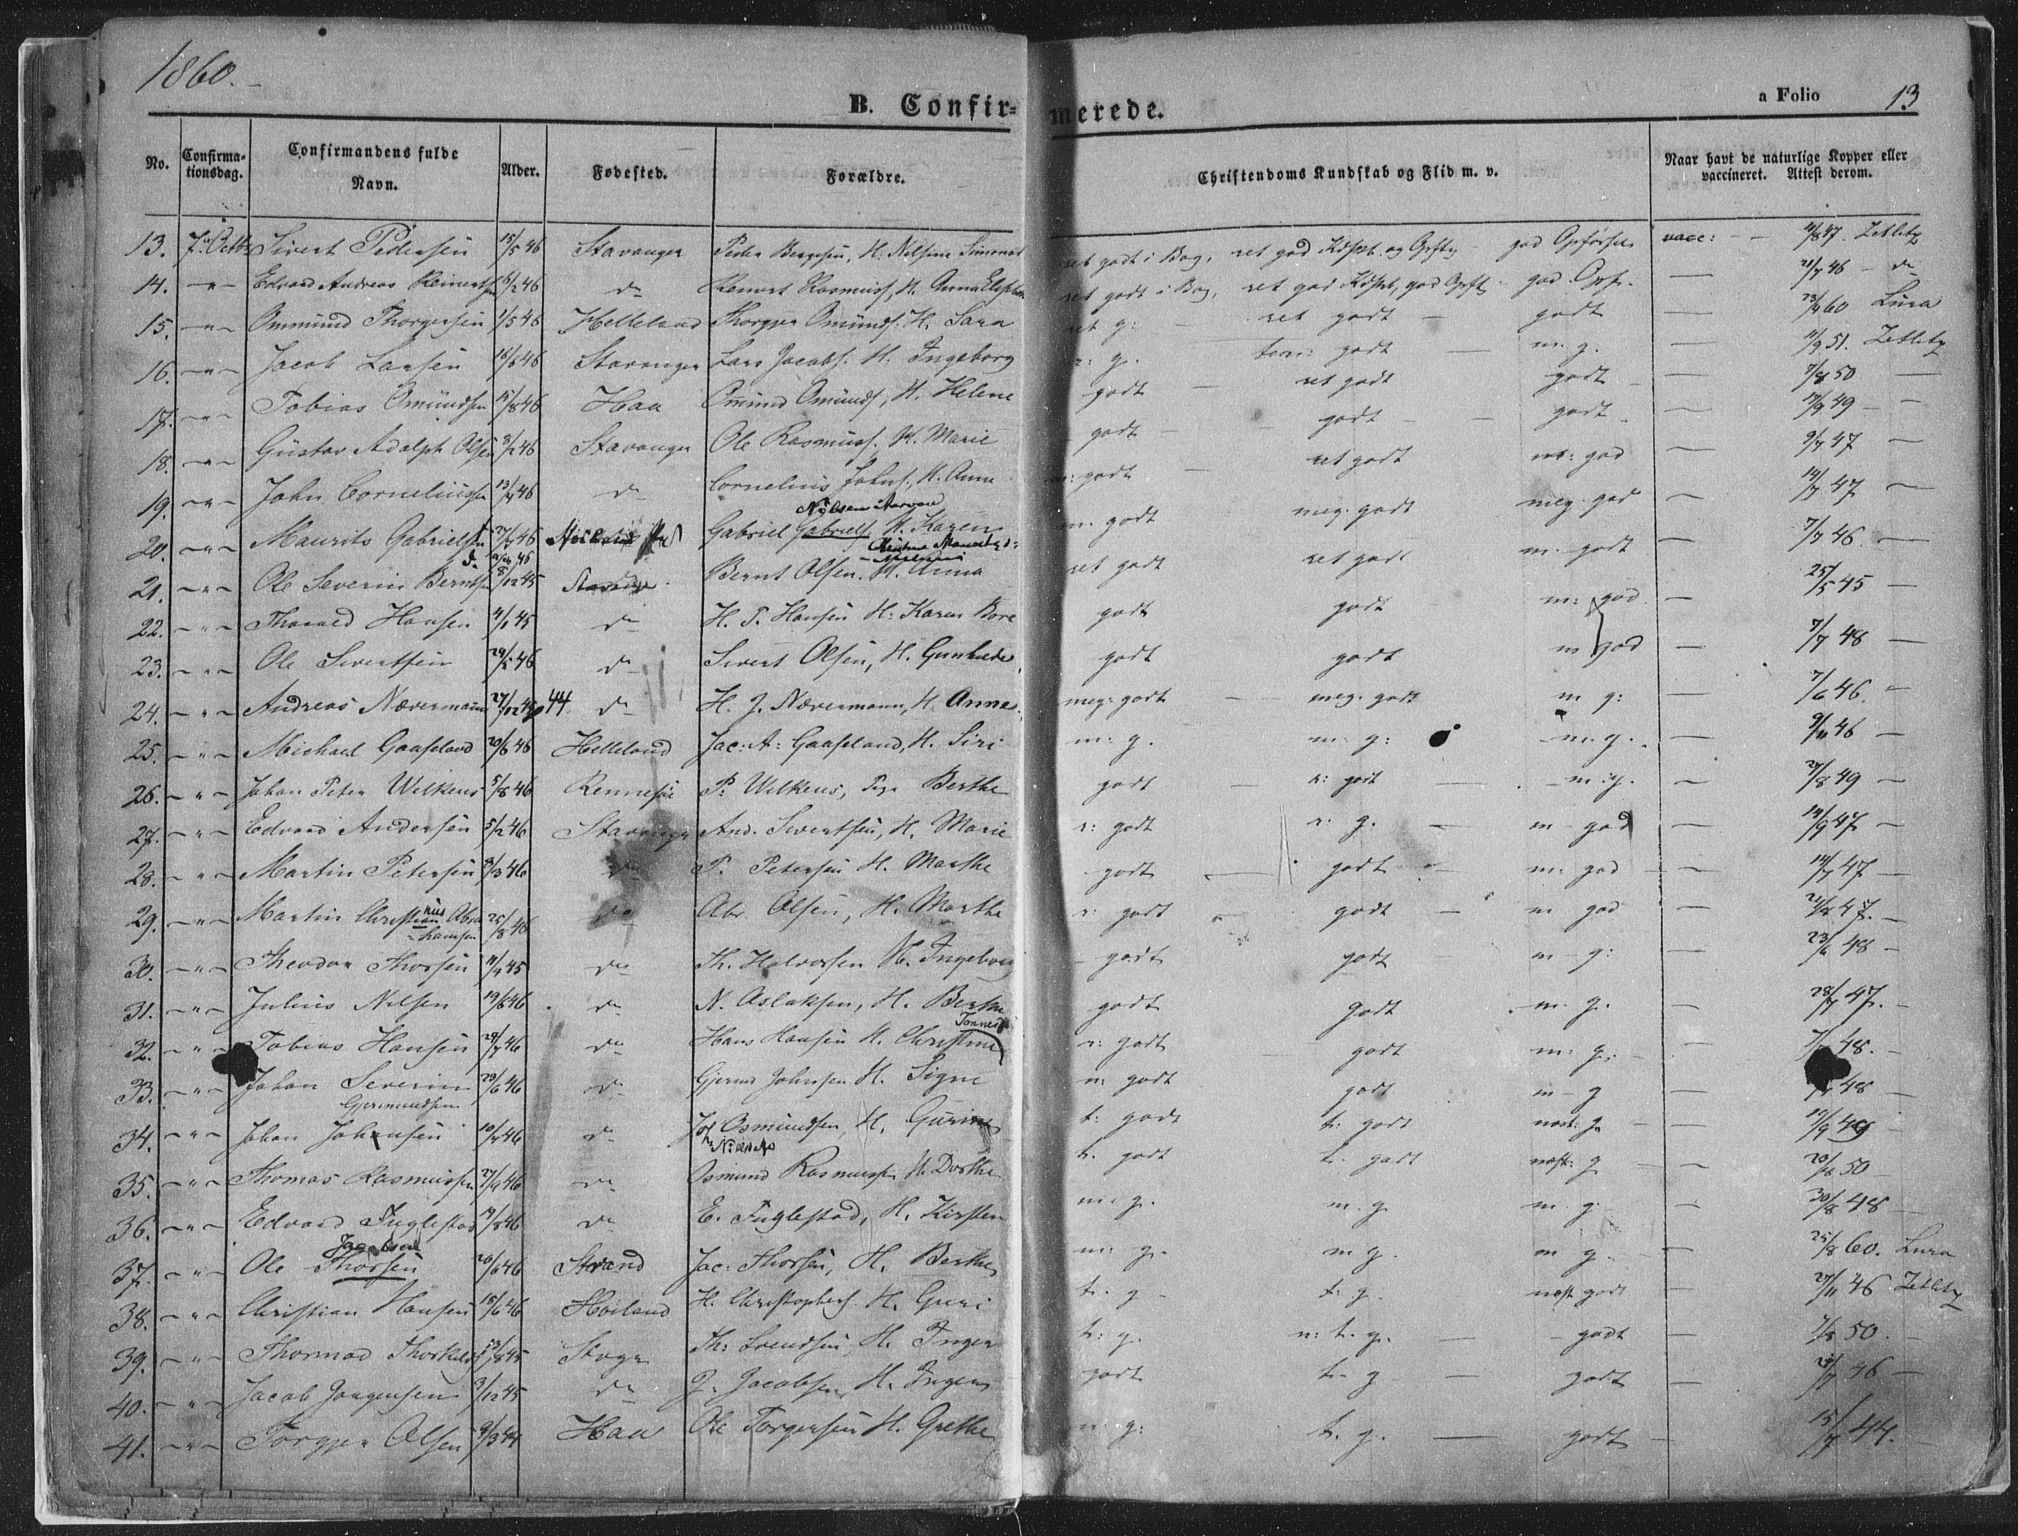 1860.
B. Confir-merede.
a Folio 13
No. Confirma-tionsdag. Confirmandens fulde Navn. Alder. Fødested. Forældre. Christendoms Kundskab og Flid m. v. Naar havt de naturlige Kopper eller vaccineret. Attest derom.
13. Sivert Pedersen 15/5 46 Stavanger Peder Bergesen, H. Nilsine ret godt i Bog, ret god god Opførsel vacc: — 4/8 47. Zetlitz
14. —"— Edvard Andreas Reinertsen 6/2 46 do Reinert Rasmuss, H. Anna Elisabeth ret godt i Bog, ret god god Opf. — 21/7 46 — do
15. —"— Ommund Thorgersen 1/5 46 Helleland Thorger Omunds. H. Sara ret g: — ret godt — godt — 23/9 60 Lura
16. —"— Jacob Larsen 16/6 46 Stavanger Lars Jacobs. H. Ingeborg r: g. tem: godt — m. g. — 11/9 51. Zetlitz
17. —"— Tobias Omundsen 15/8 46 Haa Omund Omunds, H. Helene godt — ret godt godt — 7/8 50 —
18. —"— Gustav Adolph Olsen 3/2 46 Stavanger Ole Rasmuss. H. Marie godt — godt — godt. — 17/9 49 — —
19. —"— John Corneliussen 13/4 46 do Cornelius Johns, H. Anna m: godt ret godt m: god — 9/7 47 —
20. —"— Maurits Gabrielsen 27/5 46 Gabriel Gabriels H. Karen m. godt meg. godt meg. god — 14/7 47 —
Nilsen Aarvon
21. —"— Ole Severin Berntsen 8/12 45 Stavanger Bernt Olsen. H. Anna ret godt ret godt m. godt — 7/7 46 —
22. —"— Thorvald Hansen 4/1 45 do H. T. Hansen H. Karen Bore godt godt m: god — 25/5 45
23. —"— Ole Sivertsen 29/5 46 do Sivert Olsen, H. Gunhilde godt godt m god — 7/7 48 —
24. —"— Andreas Nævermann 27/12 44 do H. J. Nævermann, H. Anne meg: godt — meg. godt m g: — 7/6 46. —
25. —"— Michael Gaaseland 20/6 46 Helleland Jac: A: Gaaseland, H. Siri m: g. m: g: m. g. — 9/11 46 —
26. —"— Johan Peter Wilkens 5/8 46 Rennesøe P. Wilkens, Berthe godt — r: godt — m. g. — 29/8 49 —
27. —"— Edvard Andersen 5/2 46 Stavanger And. Sivertsen, H. Marie r: godt r: g. — m god — 14/9 47 —
28. —"— Martin Petersen 8/3 46 do P. Petersen H. Marthe godt — godt — m: god — 14/7 47 —
29. —"— Martin Christiannius Abrahamsen 25/8 46 do Abr. Olsen, H. Marthe r: godt godt — m god — 21/8 47. —
30. —"— Theodor Thorsen 11/9 45 do Th. Halvorsen H. Ingeborg godt godt m - g: — 23/6 48 —
31. —"— Julius Nilsen 19/6 46 do N. Aslaksen, H. Berthe godt godt m. g. — 28/7 47. —
32. —"— Tobias Hansen 29/7 46 do Hans Hansen H. Christine Tonnes r: godt godt m: g: — 48. —
33. —"— Johan Severin Gjermundsen 23/6 46 do Gjermd Johnsen H. Signe m: godt godt m - g — 48 —
34. —"— Johan Johansen 10/4 46 do Joh Osmundsen, H. Gurine t: godt t: godt næst: g. — 12/9 49 —
35. —"— Thomas Rasmussen 27/6 46 do Osmund Rasmussen H. Dorthe t. godt t. godt næst: g — 20/11 50 —
36. —"— Edvard Fuglestad 14/8 46 do E. Fuglestad, H. Kirsten m: g. m. g. m. g: — 30/8 48 —
37. —"— Ole Thorsen Jacobsen 20/6 46 Strand Jac: Thorsen, H. Berthe m: g. m g. m g. — 25/8 60. Lura
38. —"— Christian Hansen 15/6 46 Høiland H. Christophers. H. Guri t. g — t. g. næst godt — 27/11 46 Zetlitz
39. —"— Thormod Thorkelds 13/8 45 Stoga Th: Svendsen, H. Inger t: g. n: t. g. — godt — 7/8 50. —
40. —"— Jacob Jorgensen 3/12 45 do J. Jacobsen H. Inger godt t. g — godt — 46 —
41. —"— Torger Olsen 9/3 44 Haa Ole Torgersen H. Grethe m: g: t. g. — godt — 15/7 44. —